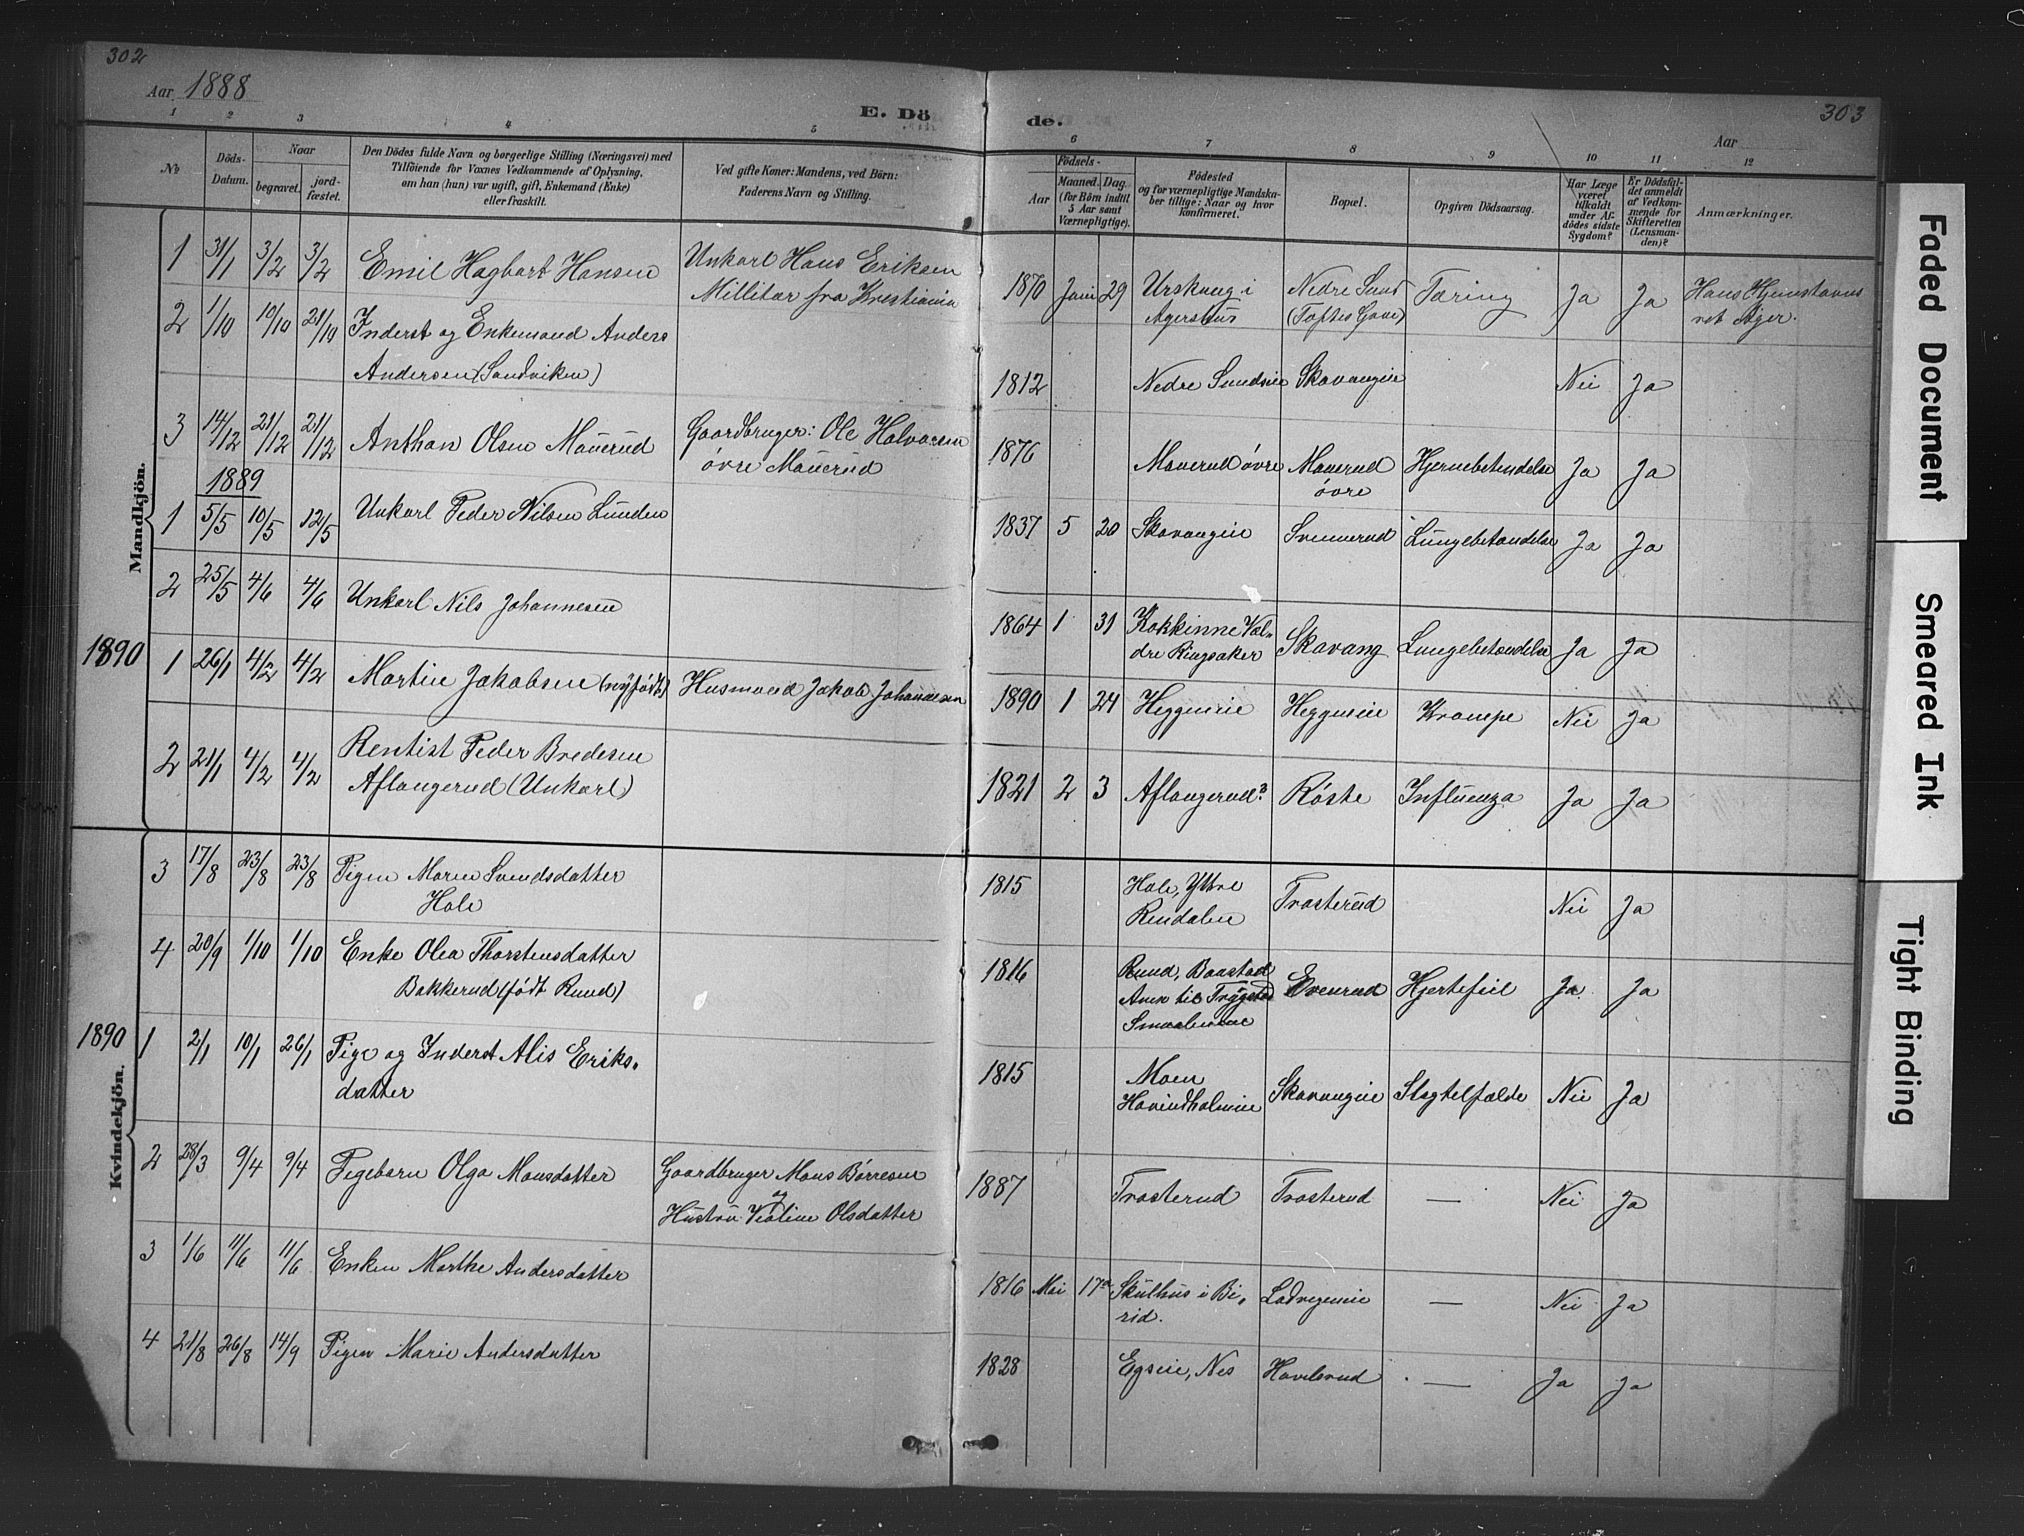 302
Aar 1888
E. Dö
de.
Aar
303
1 2 3 4 5 6 7 8 9 10 11 12
No
Döds-Datum.
Naar
begravet.
jord-fæstet.
Den Dödes fulde Navn og borgerlige Stilling (Næringsvei) med
Tilföiende for Voxnes Vedkommende af Oplysning,
om han (hun) var ugift, gift, Enkemand (Enke)
eller fraskilt.
Ved gifte Koner: Mandens, ved Börn:
Faderens Navn og Stilling.
Födsels-
Aar
Maaned. Dag
(for Börn indtil
5 Aar samt
Værnepligtige).
Födested
og for værnepligtige Mandska-
ber tillige: Naar og hvor
konfirmeret.
Bopæl.
Opgiven Dödsaarsag.
Har Læge
været
tilkaldt
under Af-
dödes sidste
Sygdom?
Er Dödsfal-
det anmeldt
af Vedkom-
mende for
Skifteretten
(Lensman-
den)?
Anmærkninger.
Mandkjön.
1 31/1 3/2 3/2 Emil Hagbart Hansen
Unkarl Hans Eriksen
Millitær fra Kristiania
1870 Juni 29 Urskoug i
Agershus
Nedre Sund
Tæring Ja Ja
Hans Hjemstavns
ret Ager.
2 1/10 10/10 21/10 Inderst og Enkemand Anders
Andersen (Sandviken)
1812 Nedre Sundseie Skavangeie Nei Ja
3 14/12 21/12 21/12 Anthon Olsen Mauerud
Gaardbruger: Ole Halvorsen
øvre Mauerud
1876 Mauerud øvre Mauerud
øvre
Hjernebetendelse Ja Ja
1889
1 5/5 10/5 12/5 Unkarl Peder Nilsen Lunden
1837 5 20 Skavangeie Svennerud Lungebetændelse Ja Ja
2 25/5 4/6 4/6 Unkarl Nils Johannesen
1864 1 31 Kokkinne Væl-
dre Ringsaker
Skavang Lungebetændelse Ja Ja
1890
1 26/1 4/2 4/2 Martin Jakobsen (nyfødt) Husmand Jakob Johannesen
1890 1 24 Heggeneie Heggeneie Krampe Nei Ja
2 21/1 4/2 4/2 Rentist Peder Bredesen
Aflangerud (Unkarl)
1821 2 3 Aflangerud? Røste Influenza Ja Ja
Kvindekjön.
3 17/8 23/8 23/8 Pigen Maren Svendsdatter
Hole
1815 Hole, Yttre
Rendalen
Trosterud Nei Ja
4 20/9 1/10 1/10 Enke Olea Thorstensdatter
Bakkerud (født Ruud)
1816 Ruud, Baastad
Anex til Trygstad
Smaalenene
Evenrud Hjertefeil Ja Ja
1890
1 2/1 10/1 26/1 Pige og Inderst Alis Eriks-
datter
1815 Moen
Hovindholmeie
Skavangeie Slagtelfælde Nei Ja
2 28/3 9/4 9/4 Pigebarn Olga Monsdatter
Gaardbruger Mons Børresen
og
Hustru Violine Olsdatter
1887 Trosterud Trosterud — Nei Ja
3 1/6 11/6 11/6 Enken Marthe Andersdatter
1816 Mai 17de Skulhus i Bi-
rid.
Ladvegeneie — Nei Ja
4 21/8 26/8 14/9 Pigen Marie Andersdatter
1828 Egseie, Nes Havelsrud — Ja Ja
Faded Document
Smeared Ink
Tight Binding